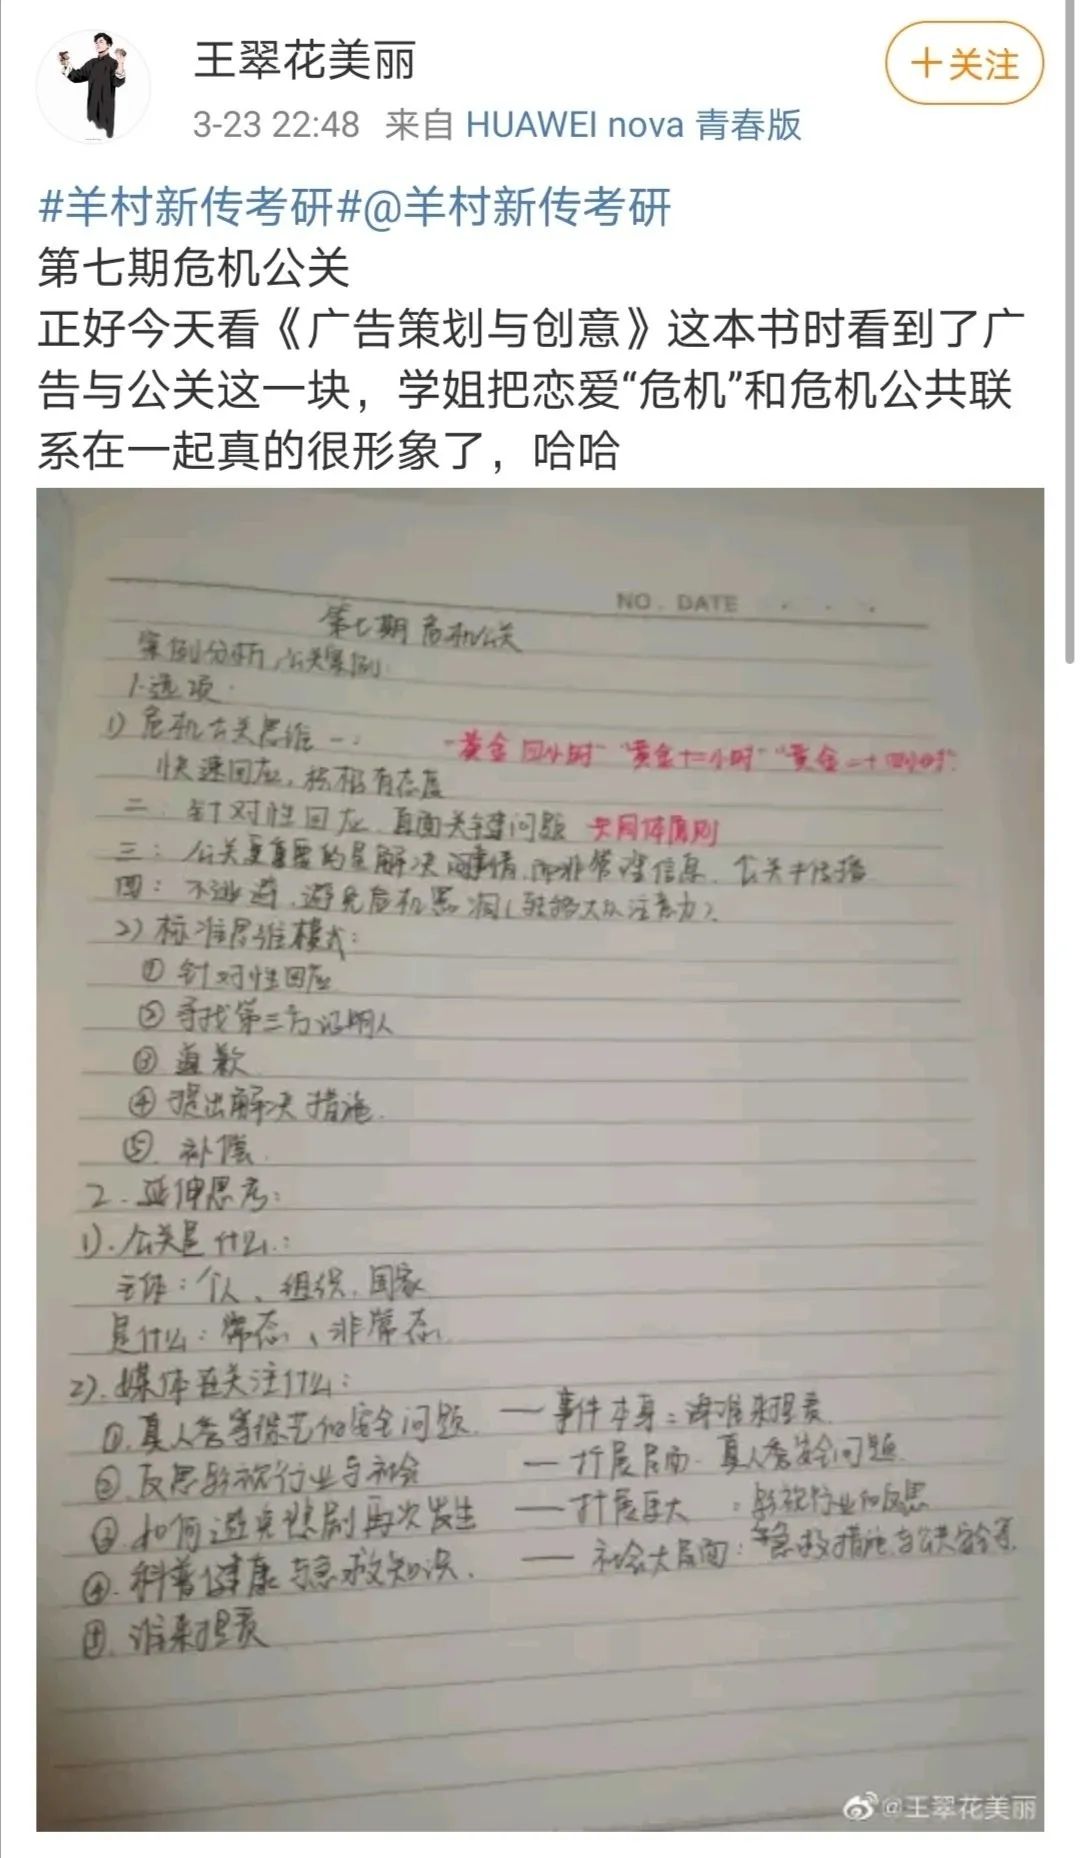 王翠花美丽
+关注
3-23 22:48 来自 HUAWEI nova 青春版
#羊村新传考研#@羊村新传考研
第七期危机公关
正好今天看《广告策划与创意》这本书时看到了广
告与公关这一块，学姐把恋爱“危机”和危机公共联
系在一起真的很形象了，哈哈
NO. DATE
第七期 危机公关
案例分析，公关案例
1.选项
1) 危机公关思维 一： “黄金四小时” “黄金十二小时” “黄金二十四小时”
快速回应，积极有态度
二：针对性回应，直面关键问题 共同体原则
三：公关更重要的是解决事情，而非管理信息，公关≠传播
四：不逃避，避免危机黑洞（转移大众注意力）
2) 标准思维模式：
① 针对性回应
② 寻找第三方证明人
③ 道歉
④ 提出解决措施.
⑤ 补偿.
2. 延伸思考：
1). 公关是什么：
主体：个人、组织、国家
是什么：常态、非常态
2). 媒体在关注什么：
①. 真人秀等综艺的安全问题. — 事件本身：谁来担责
②. 反思影视行业与社会 — 扩展层面. 真人秀安全问题
③. 如何避免悲剧再次发生 — 扩展至大：影视行业的反思
④. 科普健康与急救知识. — 社会大层面：急救措施与公共安全等.
谁来担责
@王翠花美丽